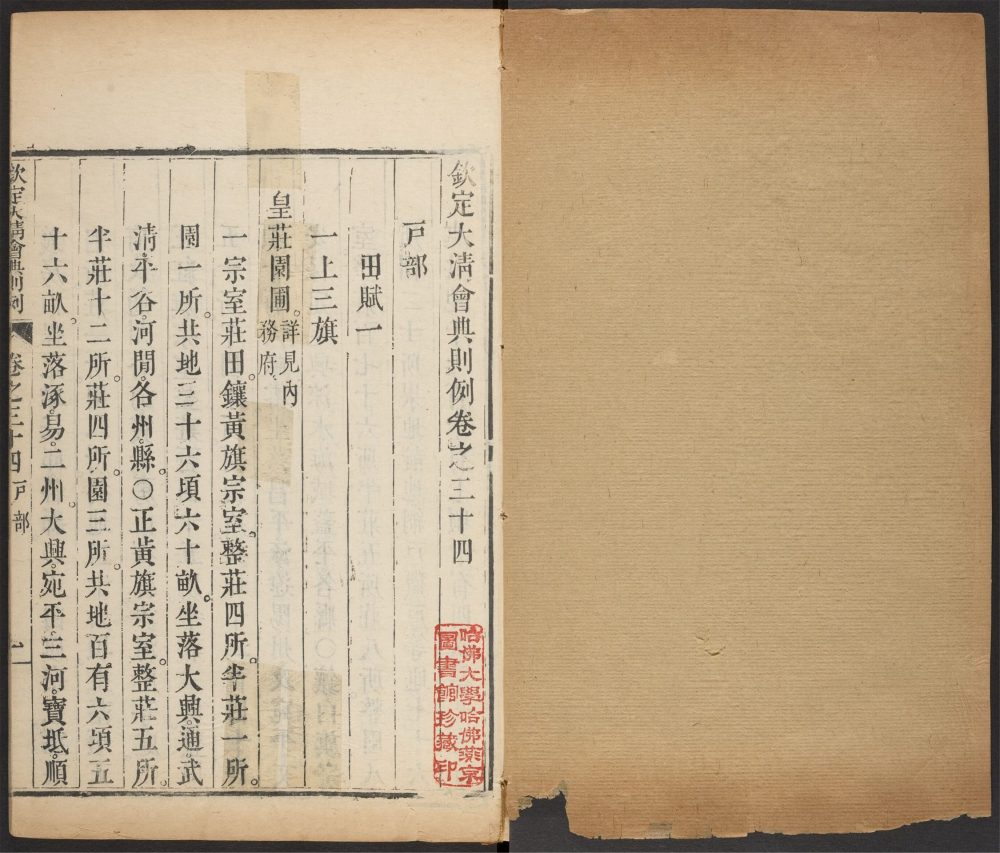 欽定大清會典則例卷之三十四
戸部
田賦一
一上三旗
皇莊園圃。詳見內
務府。
一宗室莊田。鑲黃旗宗室。整莊四所。半莊一所。
園一所。共地三十六頃六十畝。坐落大興。通。武
淸。平谷。河閒。各州縣。○正黃旗宗室。整莊五所。
半莊十二所。莊四所。園三所。共地百有六頃五
十六畝。坐落涿。易。二州。大興。宛平。三河。寶坻。順
欽定大清會典則例
卷之三十四 戸部
一
哈佛大學哈佛燕京
圖書館珍藏印